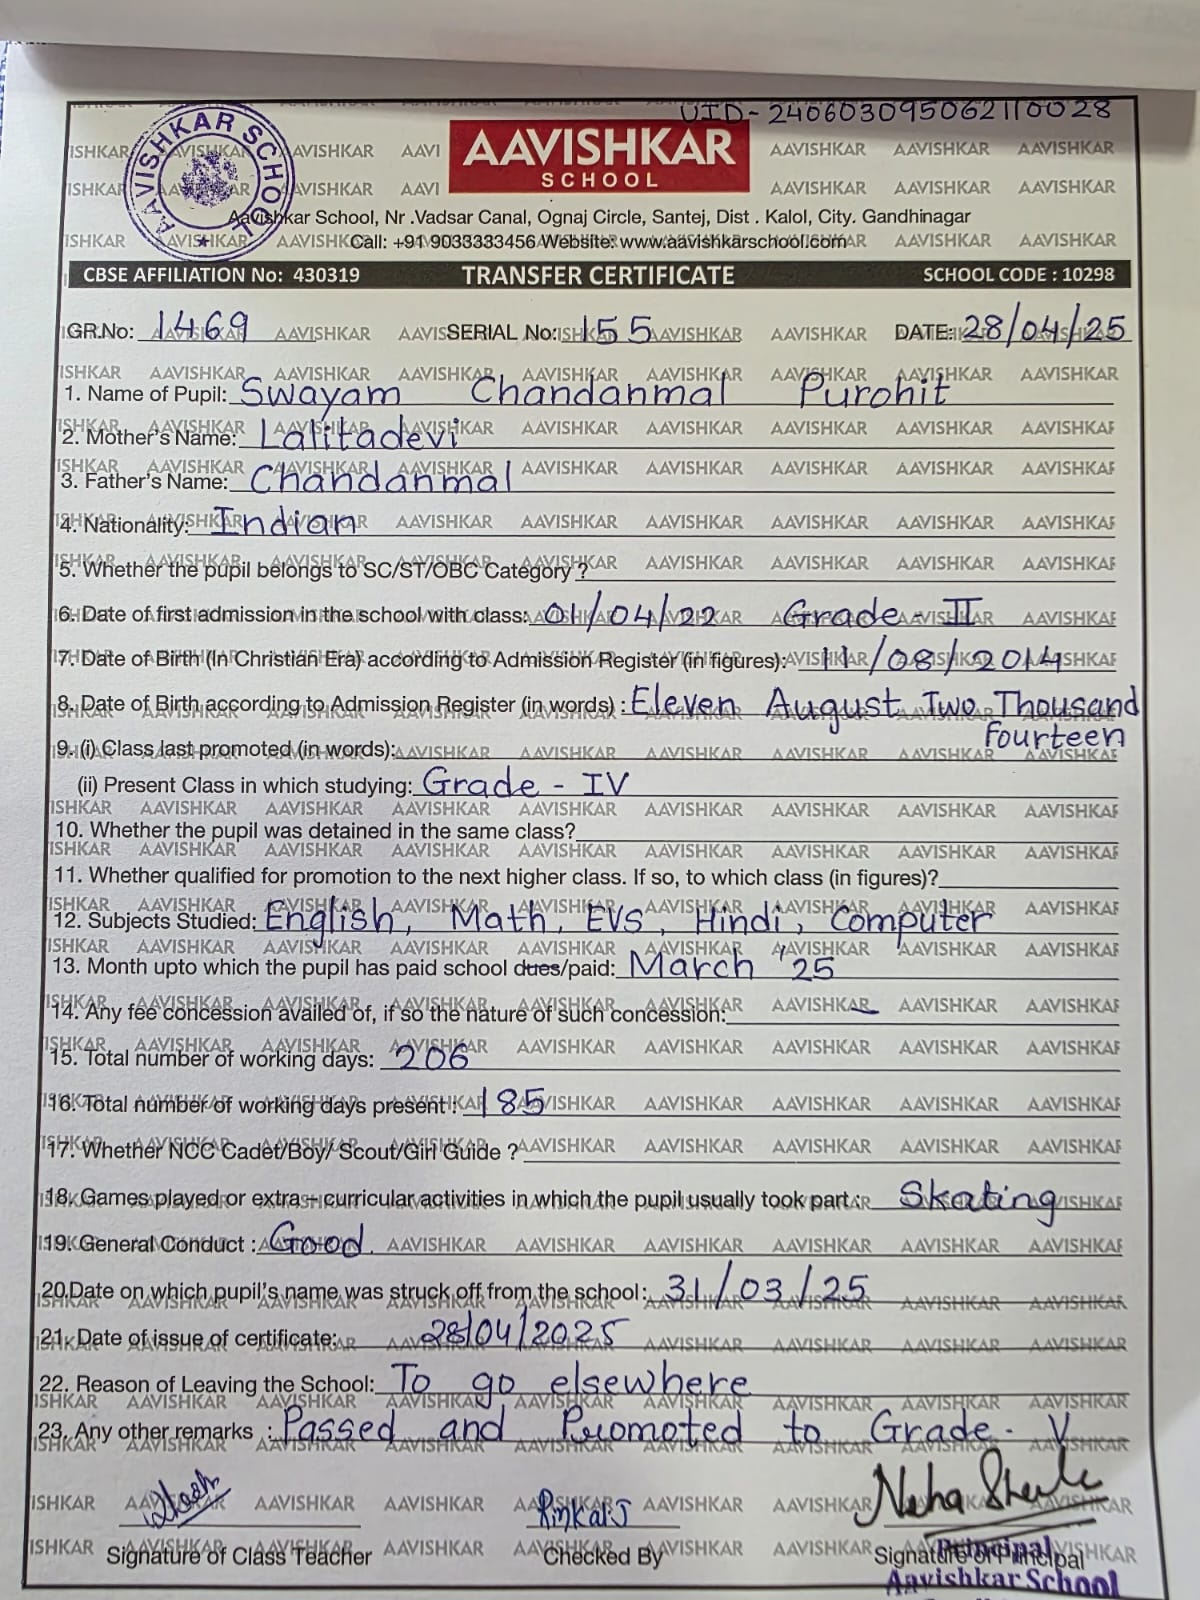 UID-240603095062110028
AAVISHKAR SCHOOL
AAVISHKAR
SCHOOL
Aavishkar School, Nr .Vadsar Canal, Ognaj Circle, Santej, Dist . Kalol, City. Gandhinagar
Call: +91 9033333456 Website: www.aavishkarschool.com
CBSE AFFILIATION No: 430319 TRANSFER CERTIFICATE SCHOOL CODE : 10298
GR.No: 1469 SERIAL No: 155 DATE: 28/04/25
1. Name of Pupil: Swayam Chandanmal Purohit
2. Mother's Name: Lalitadevi
3. Father's Name: Chandanmal
4. Nationality: Indian
5. Whether the pupil belongs to SC/ST/OBC Category ?
6. Date of first admission in the school with class: 01/04/22 Grade - II
7. Date of Birth (In Christian Era) according to Admission Register (in figures): 11/08/2014
8. Date of Birth according to Admission Register (in words) : Eleven August Two Thousand
Fourteen
9. (i) Class last promoted (in words):
(ii) Present Class in which studying: Grade - IV
10. Whether the pupil was detained in the same class?
11. Whether qualified for promotion to the next higher class. If so, to which class (in figures)?
12. Subjects Studied: English, Math, EVS, Hindi, Computer
13. Month upto which the pupil has paid school dues/paid: March '25
14. Any fee concession availed of, if so the nature of such concession:
15. Total number of working days: 206
16. Total number of working days present : 185
17. Whether NCC Cadet/Boy/ Scout/Girl Guide ?
18. Games played or extra – curricular activities in which the pupil usually took part : Skating
19. General Conduct : Good.
20.Date on which pupil's name was struck off from the school: 31/03/25
21. Date of issue of certificate: 28/04/2025
22. Reason of Leaving the School: To go elsewhere
23. Any other remarks : Passed and Promoted to Grade - V
PinkalJ
Signature of Class Teacher Checked By Signature of Principal
Principal
Aavishkar School